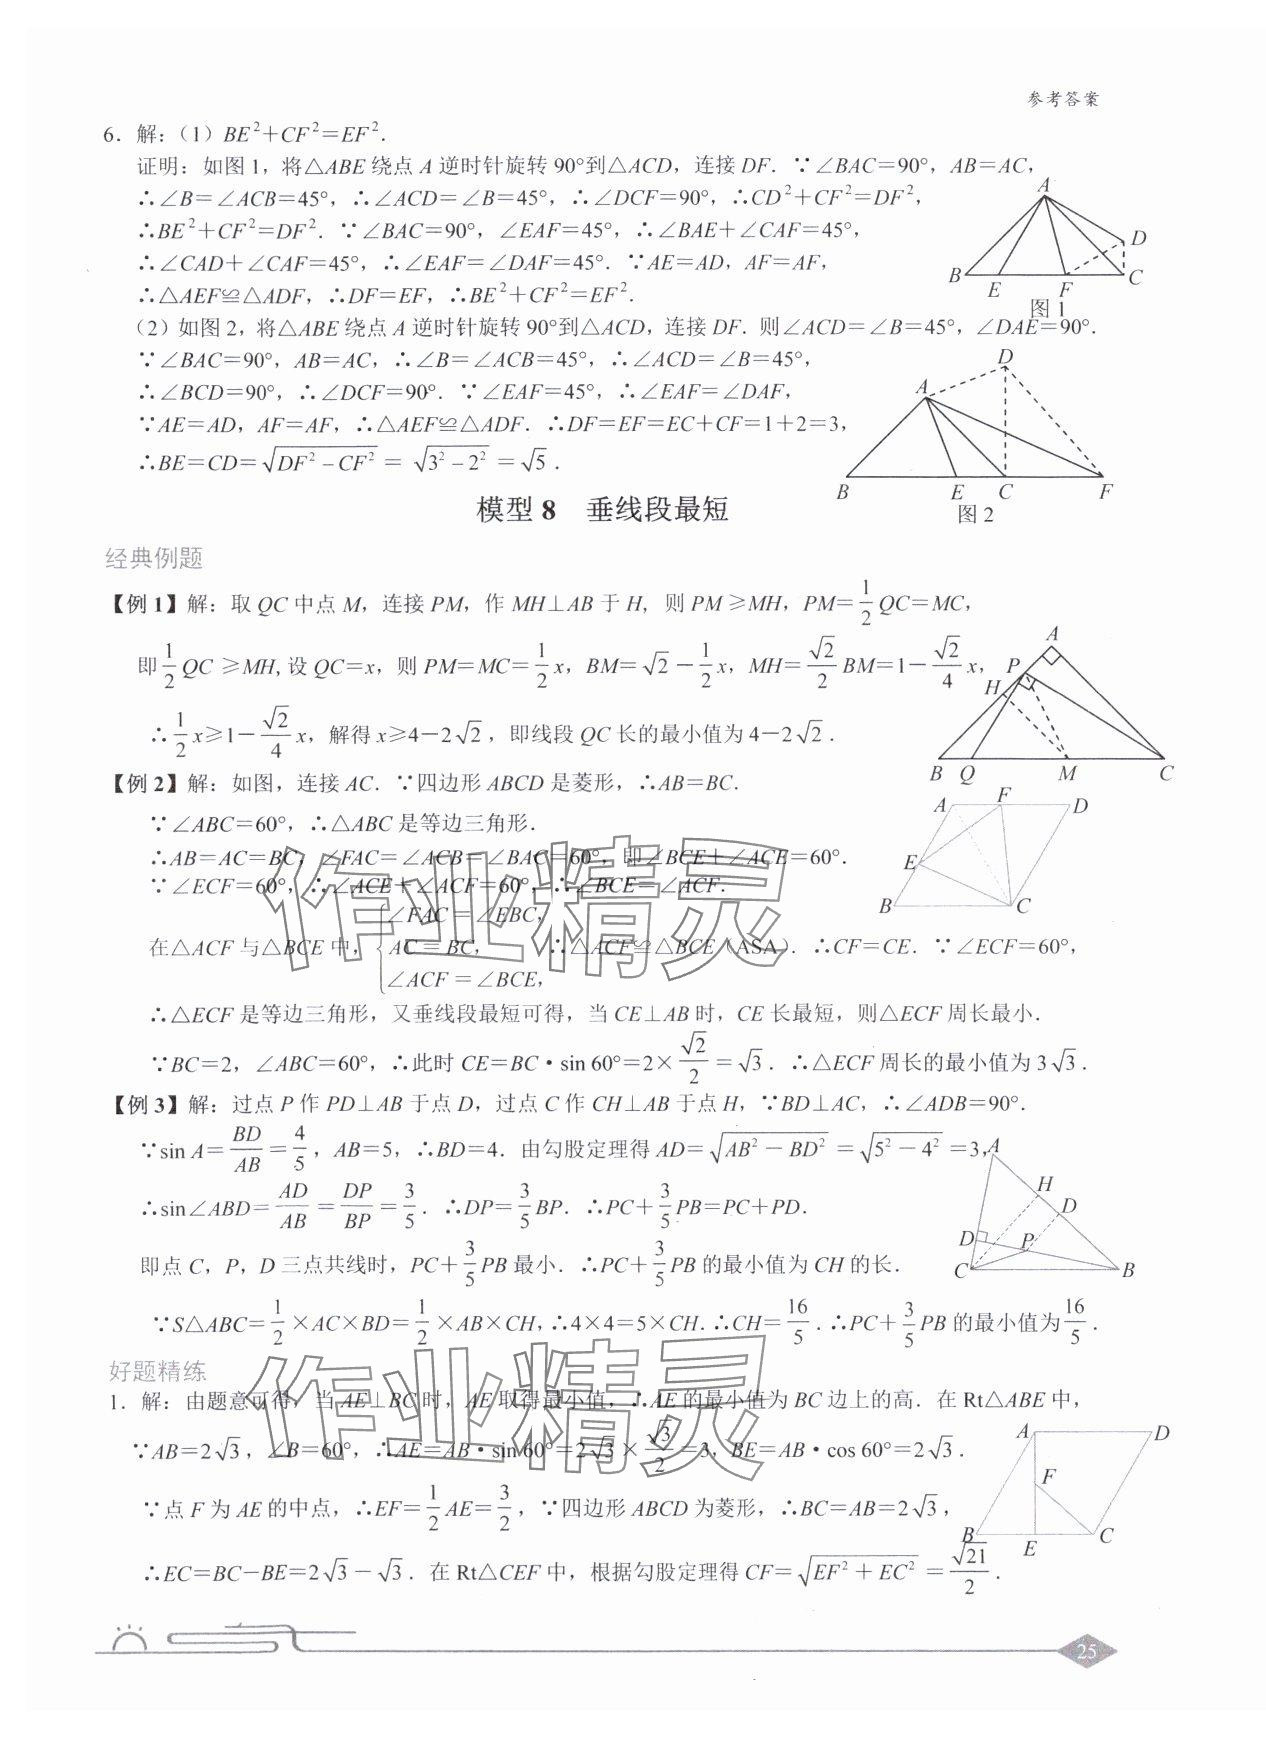 参考答案
6. 解：(1) BE²+CF²=EF².
证明：如图1，将△ABE绕点A逆时针旋转90°到△ACD，连接DF. ∵∠BAC=90°，AB=AC，
∴∠B=∠ACB=45°，∴∠ACD=∠B=45°，∴∠DCF=90°，∴CD²+CF²=DF²，
∴BE²+CF²=DF². ∵∠BAC=90°，∠EAF=45°，∴∠BAE+∠CAF=45°，
∴∠CAD+∠CAF=45°，∴∠EAF=∠DAF=45°. ∵AE=AD，AF=AF，
∴△AEF≌△ADF，∴DF=EF，∴BE²+CF²=EF².
A
D
B
E
F
C
图1
(2) 如图2，将△ABE绕点A逆时针旋转90°到△ACD，连接DF. 则∠ACD=∠B=45°，∠DAE=90°.
∵∠BAC=90°，AB=AC，∴∠B=∠ACB=45°，∴∠ACD=∠B=45°，
∴∠BCD=90°，∴∠DCF=90°. ∵∠EAF=45°，∴∠EAF=∠DAF，
∵AE=AD，AF=AF，∴△AEF≌△ADF. ∴DF=EF=EC+CF=1+2=3，
∴BE=CD=√(DF²-CF²)=√(3²-2²)=√5.
D
A
B
E
C
F
图2
模型8 垂线段最短
经典例题
【例1】解：取QC中点M，连接PM，作MH⊥AB于H，则PM≥MH，PM=1/2QC=MC，
即1/2QC≥MH，设QC=x，则PM=MC=1/2x，BM=√2-1/2x，MH=√2/2BM=1-√2/4x，
∴1/2x≥1-√2/4x，解得x≥4-2√2，即线段QC长的最小值为4-2√2.
A
P
H
B
Q
M
C
【例2】解：如图，连接AC. ∵四边形ABCD是菱形，∴AB=BC.
∵∠ABC=60°，∴△ABC是等边三角形.
∴AB=AC=BC，∠FAC=∠ACB=∠BAC=60°，即∠BCE+∠ACE=60°.
∵∠ECF=60°，∴∠ACE+∠ACF=60°，∴∠BCE=∠ACF.
∠FAC=∠EBC，
在△ACF与△BCE中，{AC=BC， ∴△ACF≌△BCE (ASA). ∴CF=CE. ∵∠ECF=60°，
∠ACF=∠BCE，
A
F
D
E
B
C
∴△ECF是等边三角形，又垂线段最短可得，当CE⊥AB时，CE长最短，则△ECF周长最小.
∵BC=2，∠ABC=60°，∴此时CE=BC·sin 60°=2×√2/2=√3. ∴△ECF周长的最小值为3√3.
【例3】解：过点P作PD⊥AB于点D，过点C作CH⊥AB于点H，∵BD⊥AC，∴∠ADB=90°.
∵sin A=BD/AB=4/5，AB=5，∴BD=4. 由勾股定理得AD=√(AB²-BD²)=√(5²-4²)=3，
∴sin∠ABD=AD/AB=DP/BP=3/5. ∴DP=3/5BP. ∴PC+3/5PB=PC+PD.
即点C，P，D三点共线时，PC+3/5PB最小. ∴PC+3/5PB的最小值为CH的长.
∵S△ABC=1/2×AC×BD=1/2×AB×CH，∴4×4=5×CH. ∴CH=16/5. ∴PC+3/5PB的最小值为16/5.
A
H
D
D
P
C
B
好题精练
1. 解：由题意可得，当AE⊥BC时，AE取得最小值，∴AE的最小值为BC边上的高. 在Rt△ABE中，
∵AB=2√3，∠B=60°，∴AE=AB·sin 60°=2√3×√3/2=3，BE=AB·cos 60°=2√3.
∵点F为AE的中点，∴EF=1/2AE=3/2，∵四边形ABCD为菱形，∴BC=AB=2√3，
∴EC=BC-BE=2√3-√3. 在Rt△CEF中，根据勾股定理得CF=√(EF²+EC²)=√21/2.
A
D
F
B
E
C
作业精灵
作业精灵
25